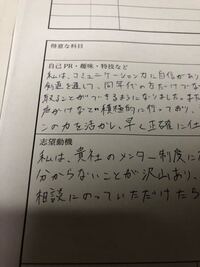 得意な科目
自己PR・趣味・特技など
私は、コミュニケーション力に自信があり
創造を通して、同年代の方だけでな
取ることができるようになりました。また
声かけなどの積極的に行っており、
この力を活かし、早く正確に仕
志望動機
私は、貴社のメンター制度に
分からないことが沢山あり、
相談にのっていただけたら